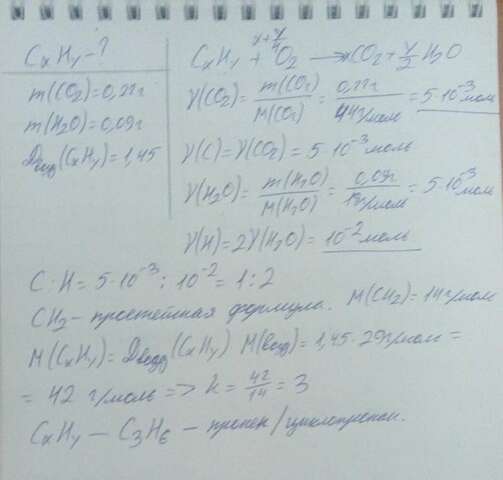 CxHy - ?
m(CO2)=0,22г
m(H2O)=0,09г
Dвозд(CxHy)=1,45
CxHy + x+y/4 O2 → xCO2 + y/2 H2O
γ(CO2) = m(CO2)/M(CO2) = 0,22г/44г/моль = 5·10⁻³ моль
γ(C)=γ(CO2)= 5·10⁻³ моль
γ(H2O) = m(H2O)/M(H2O) = 0,09г/18г/моль = 5·10⁻³ моль
γ(H)=2γ(H2O)=10⁻² моль
C:H = 5·10⁻³ : 10⁻² = 1:2
CH2 - простейшая формула. M(CH2)=14г/моль
M(CxHy)=Dвозд(CxHy) M(возд)=1,45·29г/моль =
= 42 г/моль => k = 42/14 = 3
CxHy — C3H6 - пропен/циклопропан.